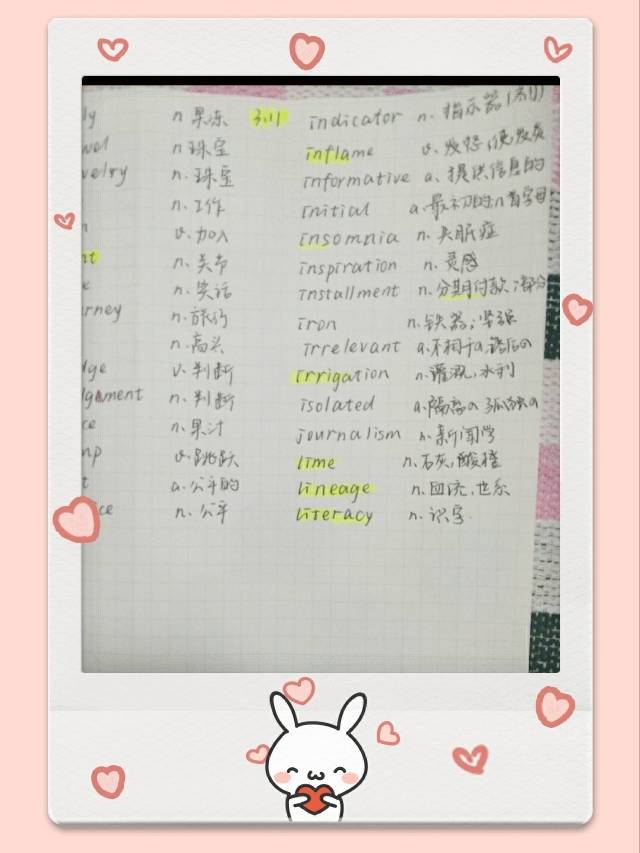 ly n 果冻 indicator n. 指示器
wel n 珠宝 inflame v. 发怒,使发炎
welry n. 珠宝 informative a. 提供信息的
n. 工作 initial a. 最初的 n 首字母
v. 加入 insomnia n. 失眠症
n. 关节 inspiration n. 灵感
e n. 笑话 installment n. 分期付款;部分
rney n. 旅行 iron n. 铁器;坚强
n. 高兴 irrelevant a. 不相干
dge v. 判断 irrigation n. 灌溉,水利
dgement n. 判断 isolated a. 隔离的 孤独的
ce n. 果汁 journalism n. 新闻学
mp v. 跳跃 lime n. 石灰,酸橙
t a. 公平的 lineage n. 血统,世系
ce n. 公平 literacy n. 识字